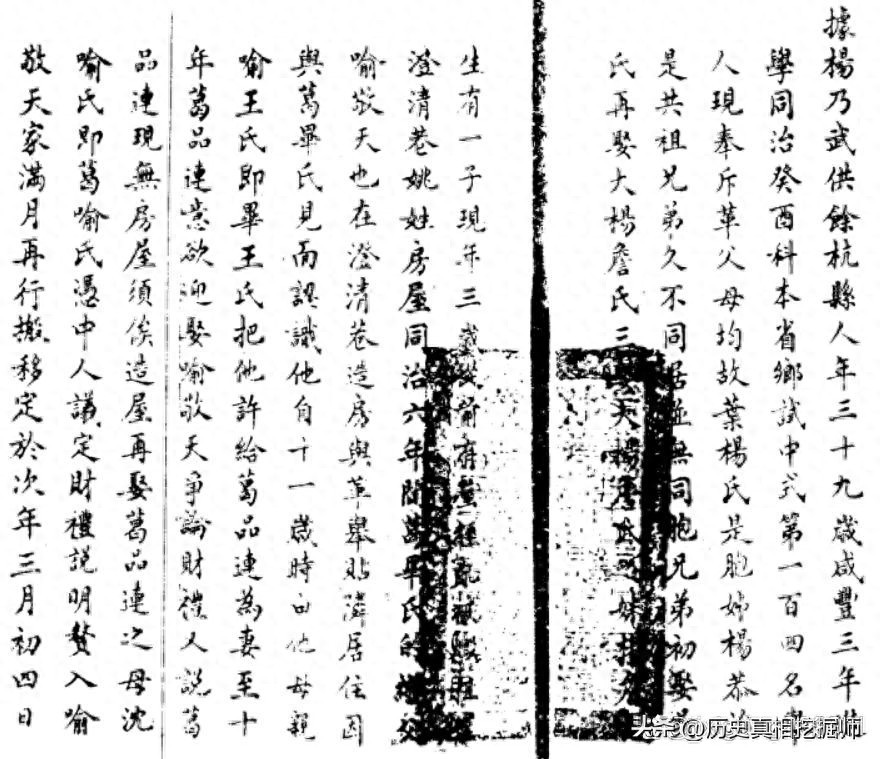 據楊乃武供餘杭縣人年三十九歲咸豐三年
學同治癸酉科本省鄉試中式第一百四名
人現奉斥革父母均故葉楊氏是胞姊楊恭
是共祖兄弟久不同居並無同胞兄弟初娶
氏再娶大楊詹氏三
生有一子現年三歲
澄清巷姚姓房屋同治六年間葛畢氏的
喻敬天也在澄清巷造房與革舉貼鄰居住因
與葛畢氏見面認識他自十一歲時由他母親
喻王氏即畢王氏把他許給葛品連為妻至十
年葛品連意欲迎娶喻敬天爭論財禮又說葛
品連現無房屋須俟造屋再娶葛品連之母沈
喻氏即葛喻氏憑中人議定財禮說明贅入喻
敬天家滿月再行搬移定於次年三月初四日
头条@历史真相挖掘师